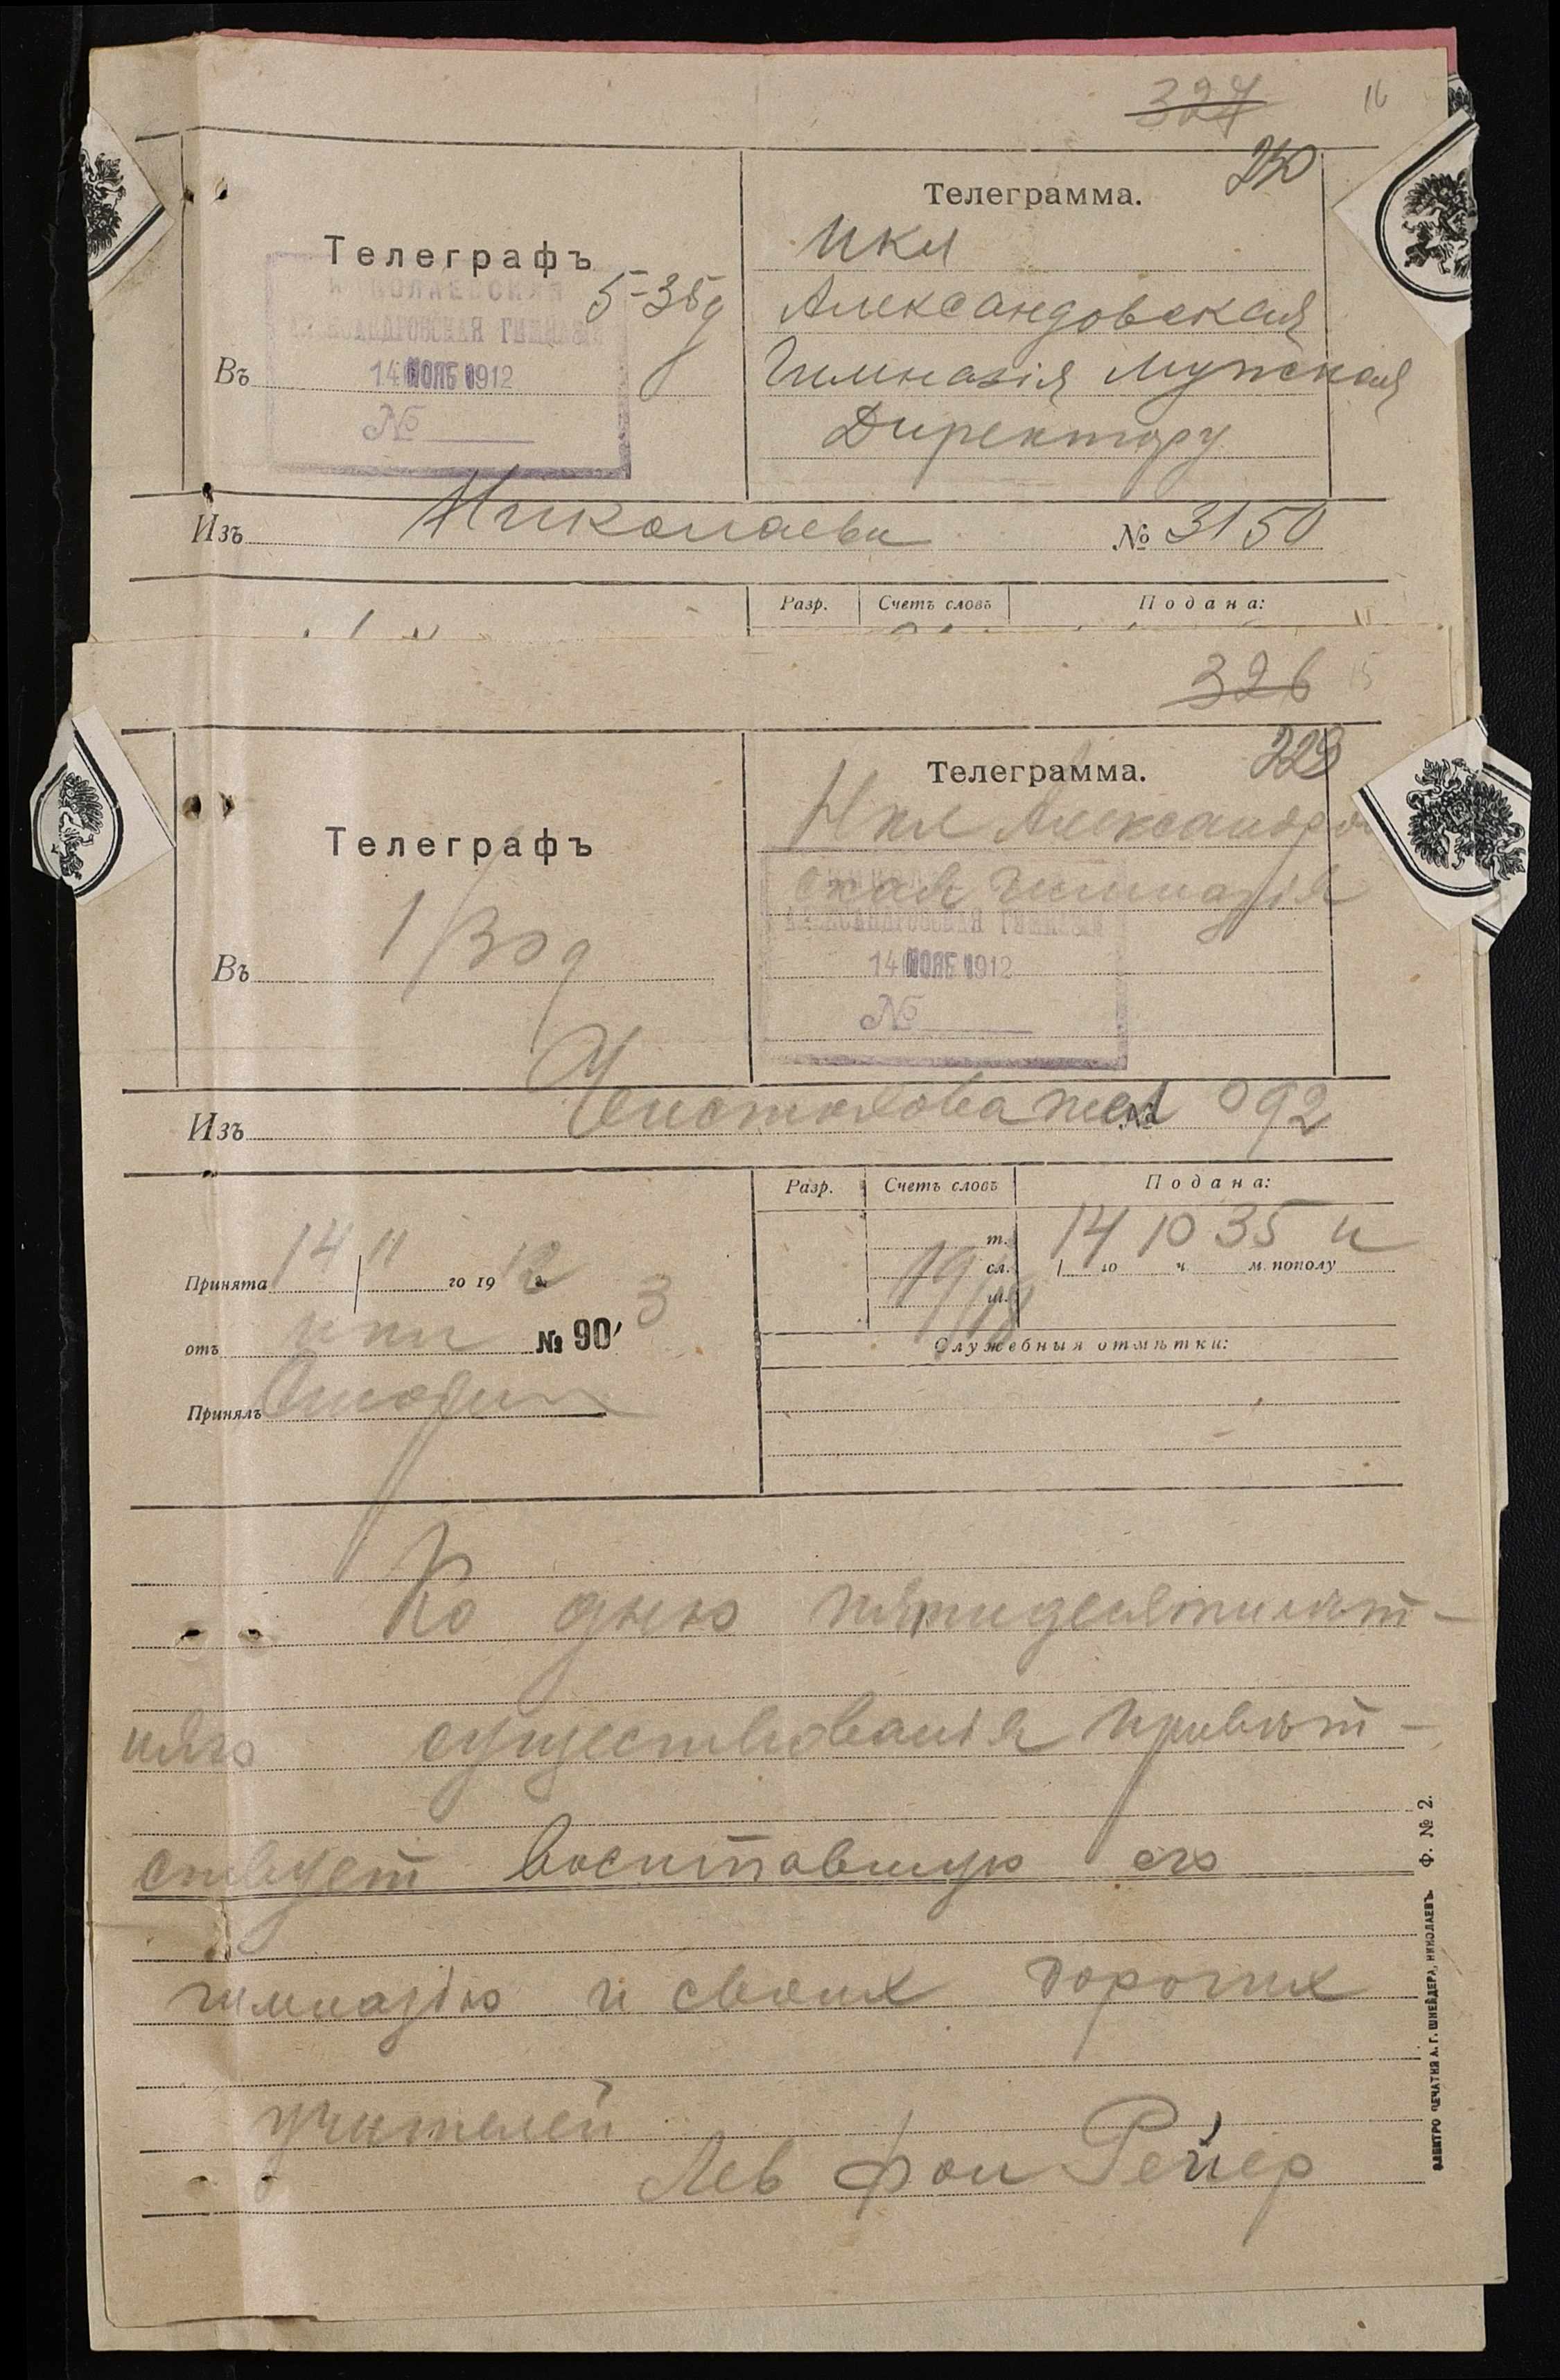 327
16
250
Телеграмма.
Нкл
Телеграфъ
5-35 д
НИКОЛАЕВСКАЯ
Александовская
АЛЕКСАНДРОВСКАЯ ГИМНАЗІЯ
Въ
14 НОЯБ 1912
Гимназія Мужская
№
Директору
Изъ Николаева № 3150
Разр. Счетъ словъ Подана:
326
15
229
Телеграмма.
Нкл Александров
Телеграфъ
ская гимназія
1/30 д
АЛЕКСАНДРОВСКАЯ ГИМНАЗІЯ
Въ
14 НОЯБ 1912
№
Изъ № 092
Разр. Счетъ словъ Подана:
т. 14 10 35 п
Принята 14 11 го 1912 г.
19/18 сл. го ч. м. пополу
ш.
отъ нкл № 90 3
Служебныя отмѣтки:
Принялъ
Ко дню пятидесятилѣт-
няго существованія привѣт-
ствует воспитавшую его
гимназію и своих дорогих
учителей
Лев фон Рейер
ЭЛЕКТРО ПЕЧАТНЯ А. Г. ШНЕЙДЕРА, НИКОЛАЕВЪ. Ф. № 2.